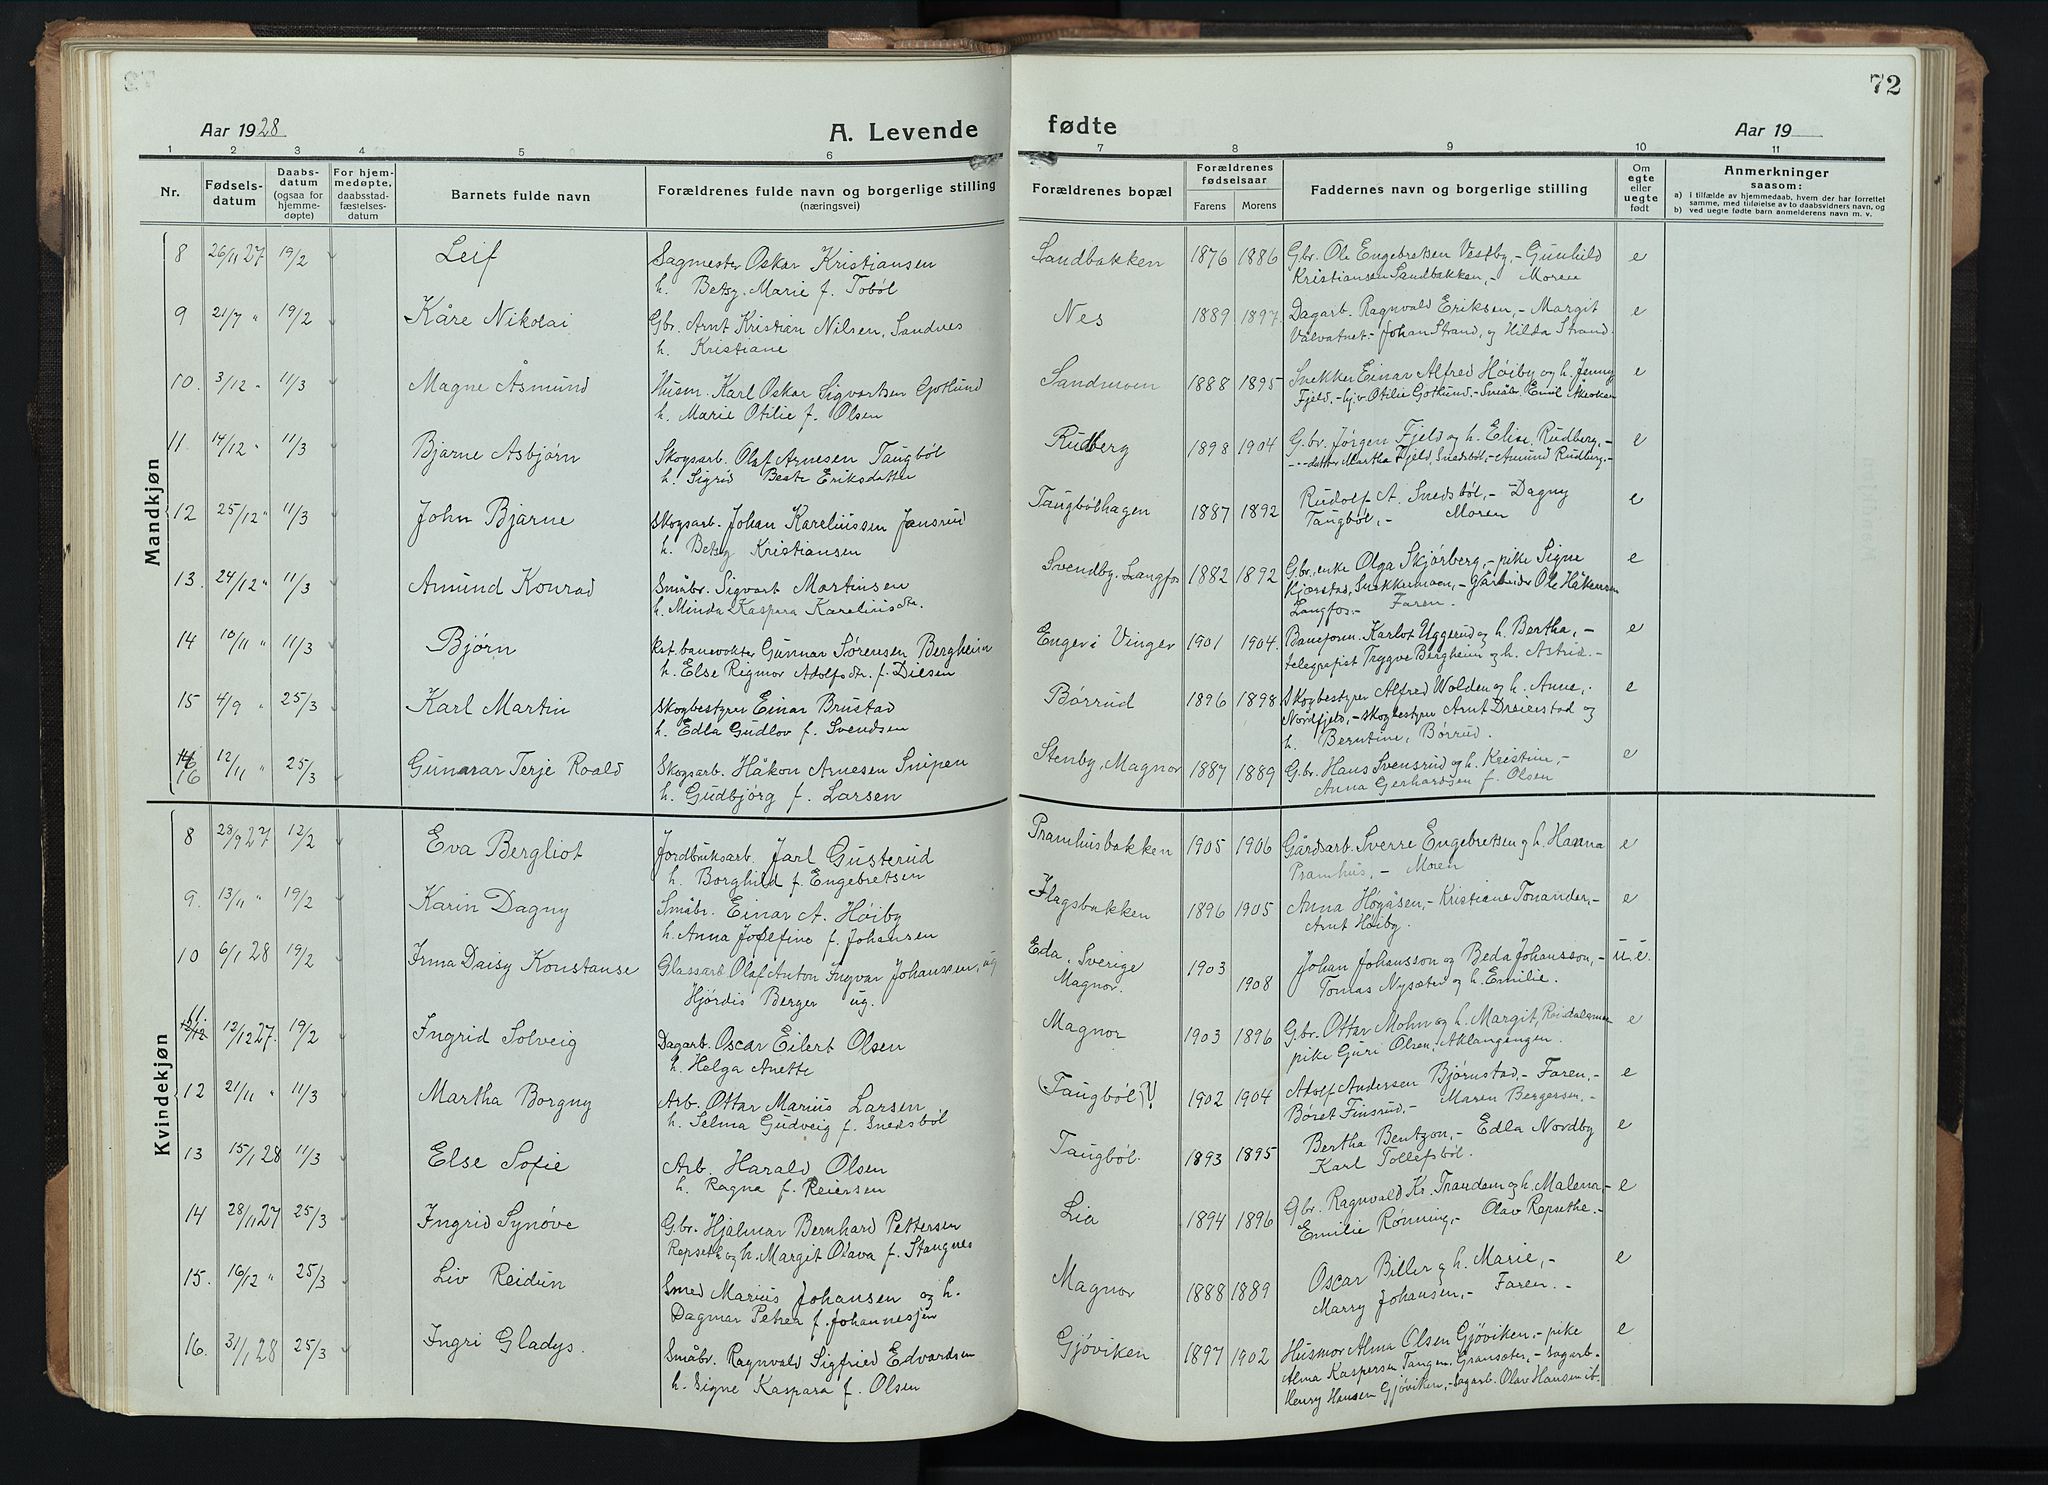 72
Aar 1928
A. Levende
fødte
Aar 19
1 2 3 4 5 6 7 8 9 10 11
Nr.
Fødsels-
datum
Daabs-
datum
(ogsaa for
hjemme-
døpte)
For hjem-
medøpte,
daabsstad-
fæstelses-
datum
Barnets fulde navn
Forældrenes fulde navn og borgerlige stilling
(næringsvei)
Forældrenes bopæl
Forældrenes
fødselsaar
Farens Morens
Faddernes navn og borgerlige stilling
Om
egte
eller
uegte
født
Anmerkninger
saasom:
a) i tilfælde av hjemmedaab, hvem der har forrettet
samme, med tilføielse av to daabsvidners navn, og
b) ved uegte fødte barn anmelderens navn m. v.
Mandkjøn
8 26/11 27 19/2 Leif Sagmester Oskar Kristiansen Sandbakken 1876 1886 Gbr. Ole Engebretsen Vestby,- Gunhild e
h. Betsy Marie f. Tobøl Kristiansen Sandbakken,- Moren
9 21/7 " 19/2 Kåre Nikolai Gbr. Arnt Kristian Nilsen, Sandnes Nes 1889 1897. Dagarb. Ragnvald Eriksen,- Margit e
h. Kristiane Valvatnet.- Johan Strand, og Hilda Strand.
10. 3/12 " 11/3 Magne Åsmund Husm. Karl Oskar Sigvartsen Gotlund Sandmoen 1888 1895 Snekker Einar Alfred Høiby og h. Jenny e
h. Marie Otilie f. Olsen Fjeld.- hjv Otilie Gotlund.- Småbr. Emil
11. 14/12 " 11/3 Bjarne Asbjørn Skogsarb. Olaf Arnesen Taugbøl Rudberg 1898 1904 G.br. Jørgen Fjeld og h. Elise, Rudberg,- e
h. Sigrid Beate Eriksdatter datter Martha Fjeld, Snedsbøl,- Amund Rudberg.-
12 25/12 " 11/3 John Bjarne Skogsarb. Johan Kareliussen Jansrud Taugbølhagen 1887 1892 Rudolf A. Snedsbøl,- Dagny e
h. Betsy Kristiansen Taugbøl,- Moren
13. 24/12 " 11/3 Amund Konrad Småbr. Sigvart Martinsen Svendby, Langfos 1882 1892 G.br., enke Olga Skjørberg,- pike Signe e
h. Minda Kaspara Kareliusdtr. Kjærstad, Snekkermoen,- gårbruker Ole Håkensen
Langfos.- Faren.
14 10/11 " 11/3 Bjørn Rst. banevokter Gunnar Sørensen Bergheim Enger i Vinger 1901 1904. Baneform. Karlot Uggerud og h. Bertha,- e
h. Else Rigmor Adolfsdtr. f. Dilsen telegrafist Trygve Bergheim og h. Astrid.-
15 4/9 " 25/3 Karl Martin Skogbestyrer Einar Brustad Børrud 1896 1898 Skogbestyrer Alfred Wolden og h. Anne, e
h. Edla Gudlov f. Svendsen Nordfjeld,- skogbestyrer Arnt Dreierstad og
h. Berntine, Børrud.
16 12/11 " 25/3 Gunnar Terje Roald Skogsarb. Håkon Arnesen Snipen Stenby, Magnor 1887 1889 G.br. Hans Svensrud og h. Kristine,- e
h. Gudbjörg f. Larsen Anna Gerhardsen f. Olsen
Kvindekjøn
8 28/9 27 12/2 Eva Bergliot Jordbruksarb. Jarl Gusterud Pramhusbakken 1905 1906 Gårdsarb. Sverre Engebretsen og h. Hanna e
h. Borghild f. Engebretsen Pramhus,- Moren
9. 13/11 " 19/2 Karin Dagny Småbr. Einar A. Høiby Flagsbakken 1896 1905 Anna Høgåsen,- Kristiane Tonander,- e
h. Anna Josefine f. Johansen Arnt Høiby.
10 6/1 28 19/2 Irma Daisy Konstanse Glassarb. Olaf Anton Ingvar Johanssen, ug Eda, Sverige 1903 Johan Johansson og Beda Johansson,- u.e.
Hjørdis Berger ug. Magnor. 1908 Tomas Nysæter og h. Emilie.
11. 12/12 27. 19/2 Ingrid Solveig Dagarb. Oscar Eilert Olsen Magnor 1903 1896 G.br. Ottar Mohn og h. Margit, e
h. Helga Anette pike Guri Olsen, Aklangengen.
12 21/11 " 11/3 Martha Borgny Arb. Ottar Marius Larsen (Taugbøl?) 1902 1904 Adolf Andersen Bjørnstad.- Faren,- e
h. Selma Gudveig f. Snedsbøl Børet Finsrud.- Maren Bergersen.-
13 15/1 28 11/3 Else Sofie Arb. Harald Olsen Taugbøl. 1893 1895 Bertha Bentzon,- Edla Nordby e
h. Ragna f. Reiersen Karl Tollefsbøl.
14 28/11 27 25/3 Ingrid Synøve G.br. Hjalmar Bernhard Pettersen Lia 1894 1896 Gbr. Ragnvald Kr. Trandem og h. Malena,- e
Repseth og h. Margit Olava f. Stangnes Emilie Rønning,- Olav Repsethe.-
15. 16/12 " 25/3 Liv Reidun Smed Marius Johansen og h. Magnor 1888 1889 Oscar Biller og h. Marie,- e
Dagmar Petrea f. Johannesjen Marry Johansen,- Faren.-
16. 31/1 28 25/3 Ingri Gladys. Småbr. Ragnvald Sigfried Edvardsen Gjøviken 1897 1902 Husmor Alma Olsen Gjøviken,- pike e
h. Signe Kaspara f. Olsen Alma Kaspersen Tangen, Gransæter,- sagarb.
Henry Hansen Gjøviken,- sagarb. Olav Hansen ib.